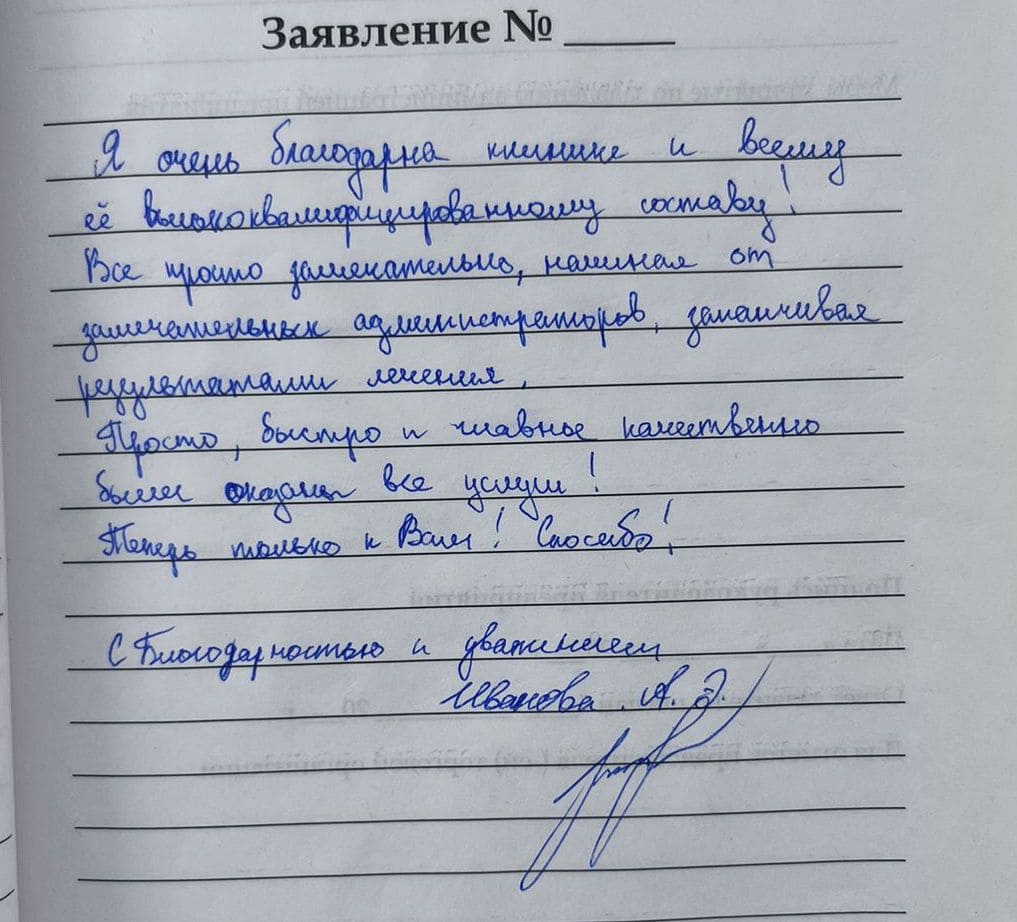 Заявление № _____
Я очень благодарна клинике и всему
её высококвалифицированному составу!
Все просто замечательно, начиная от
замечательных администраторов, заканчивая
результатами лечения.
Просто, быстро и главное качественно
были оказаны все услуги!
Теперь только к Вам! Спасибо!
С Благодарностью и уважением
Иванова А. Э.